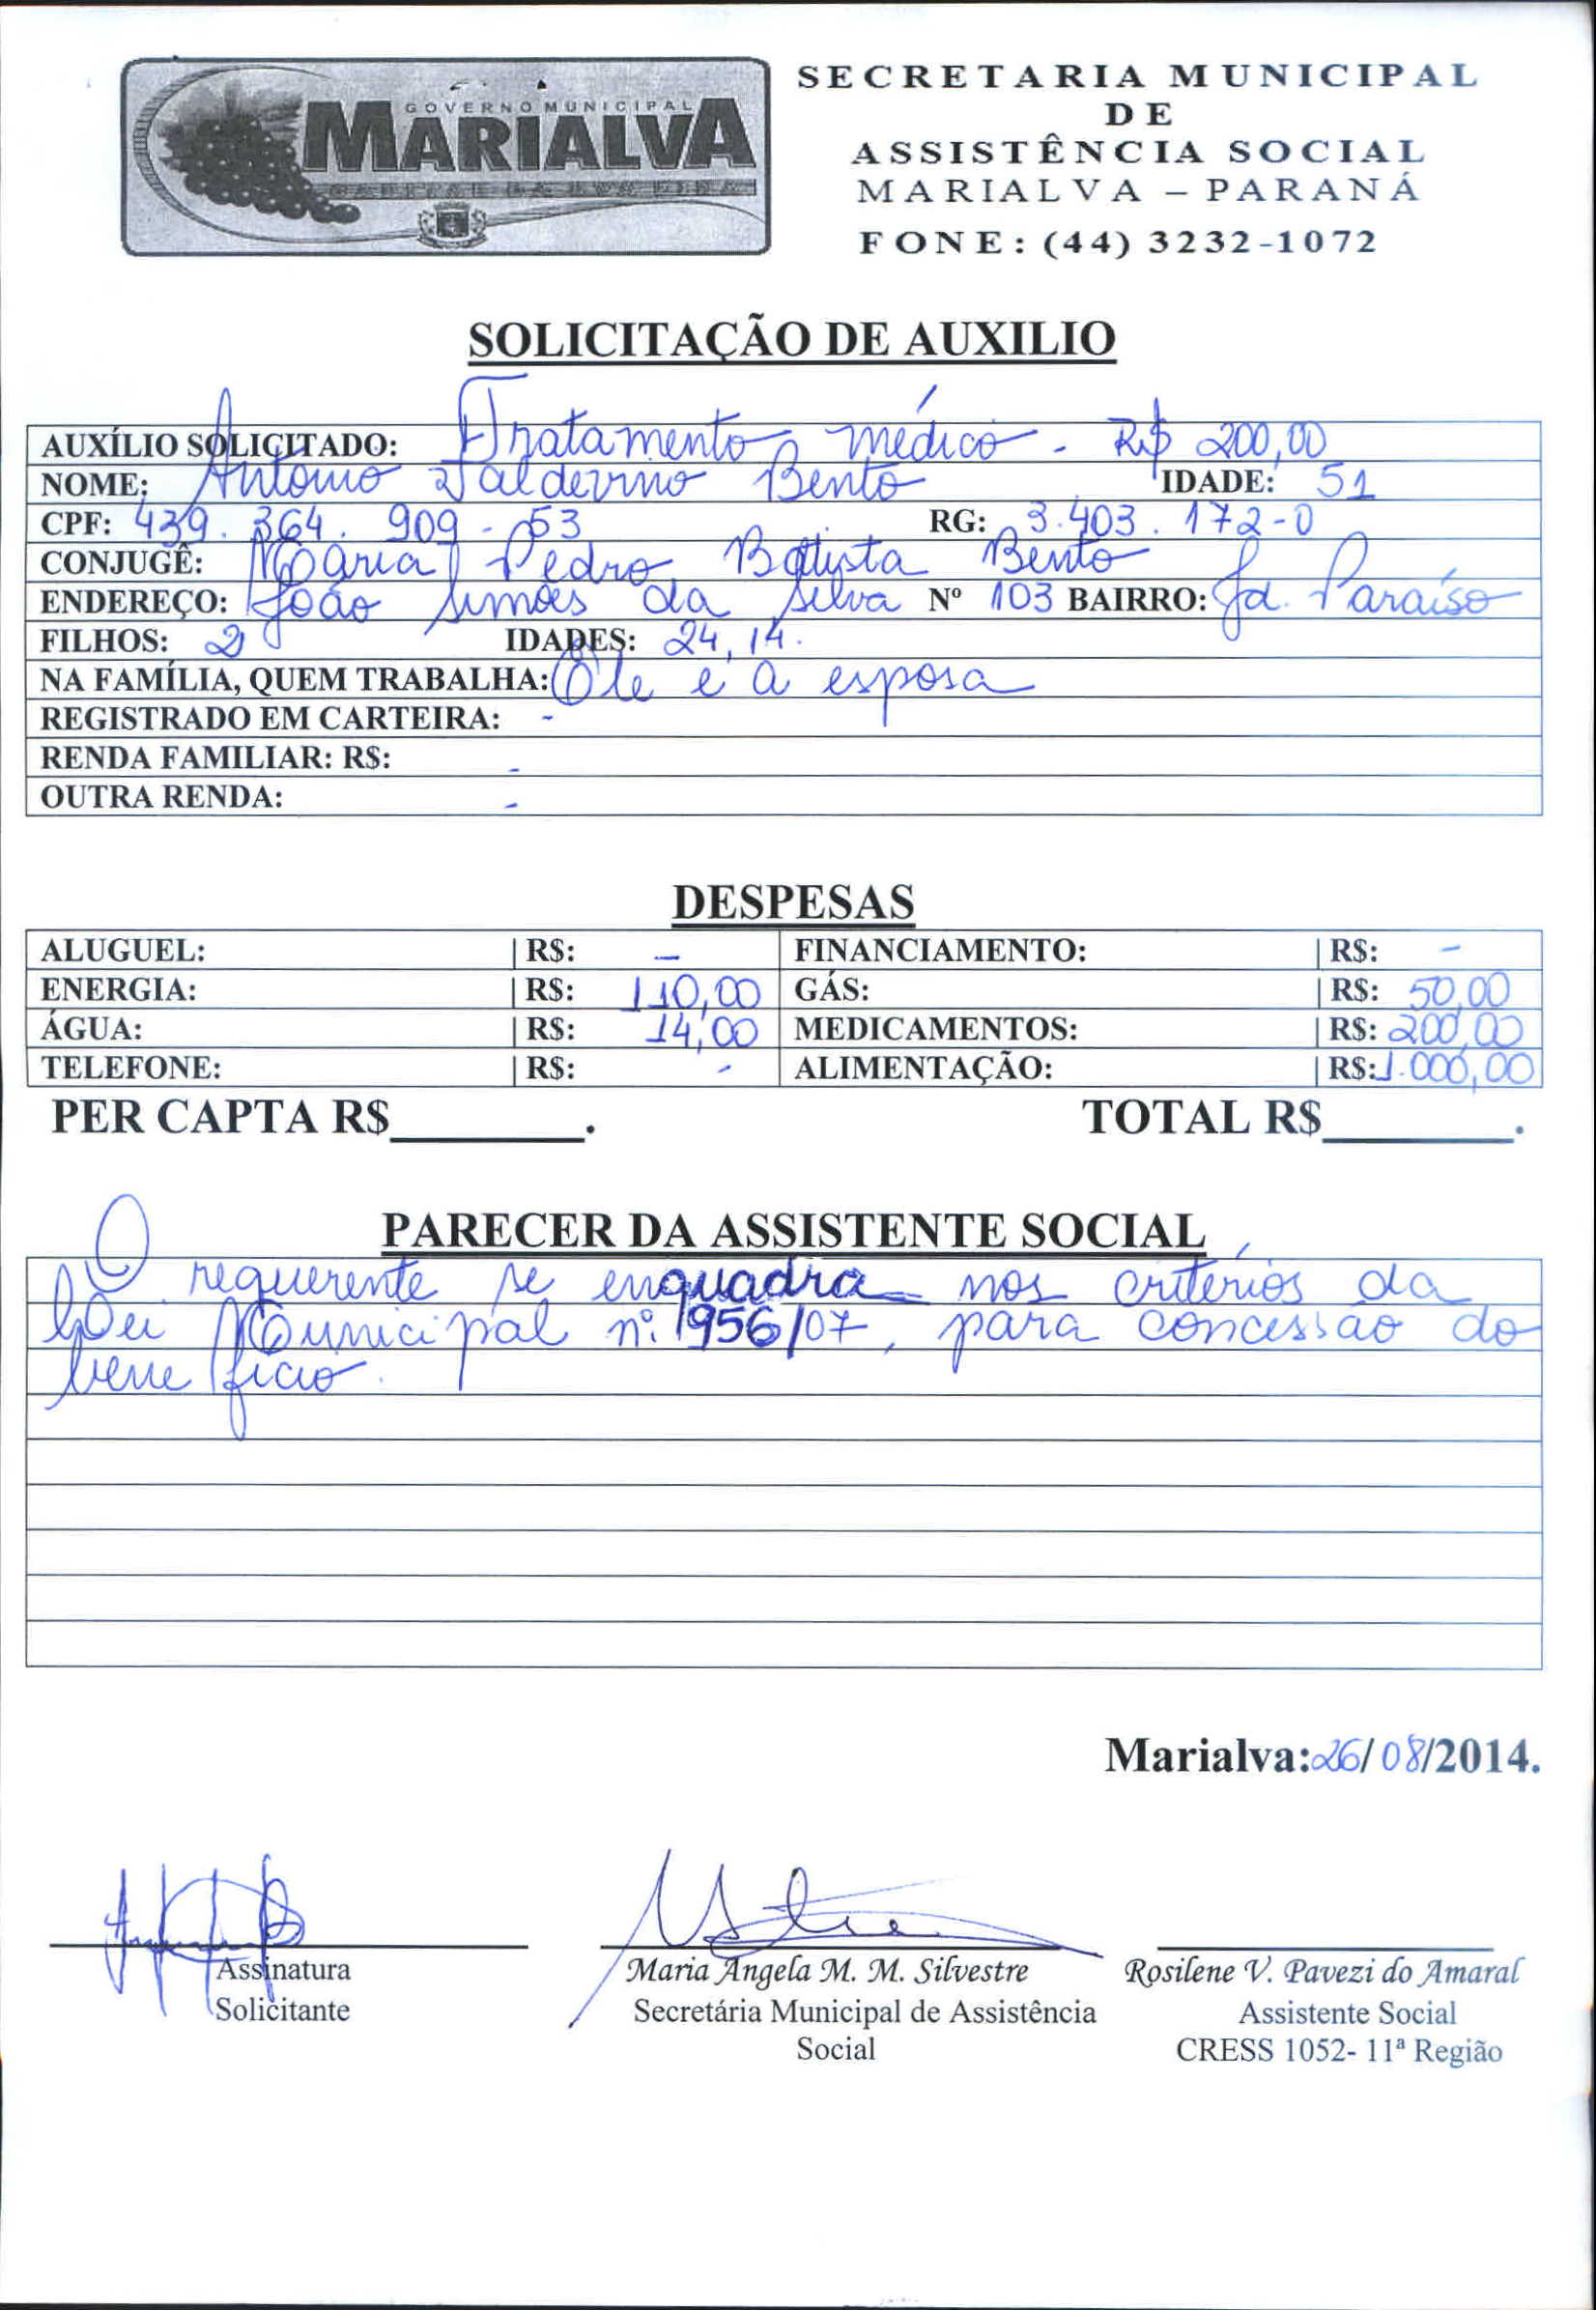 GOVERNO MUNICIPAL
MARIALVA
SECRETARIA MUNICIPAL
DE
ASSISTÊNCIA SOCIAL
MARIALVA – PARANÁ
FONE: (44) 3232-1072
SOLICITAÇÃO DE AUXILIO
AUXÍLIO SOLICITADO: Tratamento médico - R$ 200,00
NOME: Antonio Valdevino Bento IDADE: 51
CPF: 439.364.909-53 RG: 3.403.172-0
CONJUGÊ: Maria Pedro Batista Bento
ENDEREÇO: João Simões da Silva Nº 103 BAIRRO: Jd. Paraíso
FILHOS: 2 IDADES: 24, 14.
NA FAMÍLIA, QUEM TRABALHA: Ele e a esposa
REGISTRADO EM CARTEIRA: -
RENDA FAMILIAR: R$: -
OUTRA RENDA: -
DESPESAS
ALUGUEL: R$: - FINANCIAMENTO: R$: -
ENERGIA: R$: 110,00 GÁS: R$: 50,00
ÁGUA: R$: 14,00 MEDICAMENTOS: R$: 200,00
TELEFONE: R$: - ALIMENTAÇÃO: R$: 1.000,00
PER CAPTA R$________. TOTAL R$________.
PARECER DA ASSISTENTE SOCIAL
O requerente se enquadra nos critérios da
Lei Municipal nº 1956/07, para concessão do
benefício.
Marialva: 26/08/2014.
Assinatura
Solicitante
Maria Ângela M. M. Silvestre
Secretária Municipal de Assistência
Social
Rosilene V. Pavezi do Amaral
Assistente Social
CRESS 1052- 11ª Região